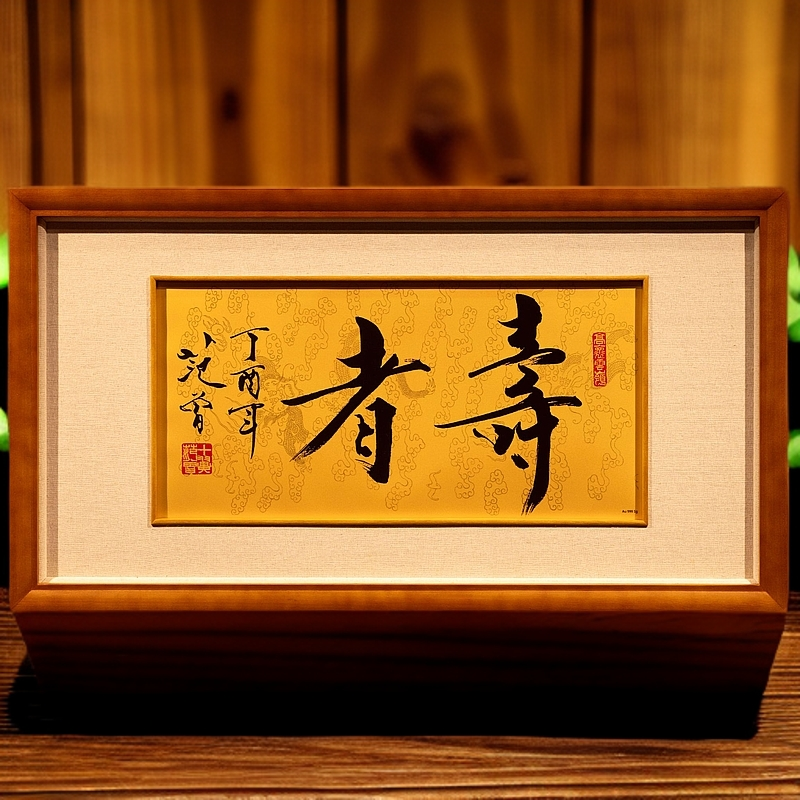 壽者
丁酉年
范曾